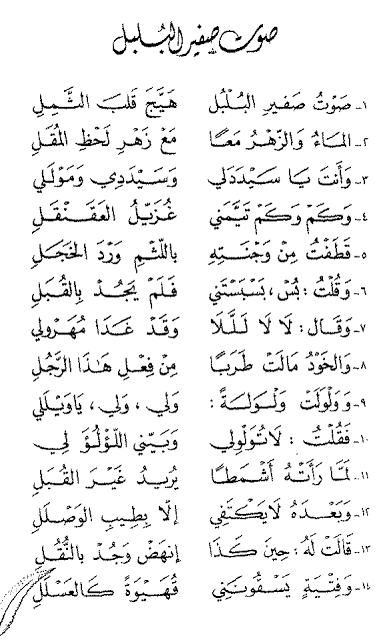 صوت صفير البلبل
١- صَوْتُ صَفِيرِ البُلْبُلِ هَيَّجَ قَلْبَ الثَّمِلِ
٢- المَاءُ وَالزَّهْرُ مَعًا مَعْ زَهْرِ لَحْظِ المُقَلِ
٣- وَأَنْتَ يَا سَيِّدَدَلِي وَسَيِّدَدِي وَمَوْلَلِي
٤- وَكَمْ وَكَمْ تَيَّمَنِي غُزَيِّلُ العَقَنْقَلِ
٥- قَطَفْتُ مِنْ وَجْنَتِهِ بِاللَّثْمِ وَرْدَ الخَجَلِ
٦- وَقُلْتُ : بُسْ ، بَسْبَسْتَنِي فَلَمْ يَجُدْ بِالقُبَلِ
٧- وَقَالَ : لَا لَا لَلَلَا وَقَدْ غَدَا مُهَرْوِلِي
٨- وَالخَوْدُ مَالَتْ طَرَبًا مِنْ فِعْلِ هَذَا الرَّجُلِ
٩- وَوَلْوَلَتْ وَلْوَلَةً : وَلِي ، وَلِي ، يَاوَيْلَلِي
١٠- فَقُلْتُ : لَاتُوَلْوِلِي وَبَيِّنِي اللُّؤْلُؤَ لِي
١١- لَمَّا رَأَتْهُ أَشْمَطًا يُرِيدُ غَيْرَ القُبَلِ
١٢- وَبَعْدَهُ لَايَكْتَفِي إِلَّا بِطِيبِ الوَصْلَلِ
١٣- قَالَتْ لَهُ : حِينَ كَذَا اِنْهَضْ وَجُدْ بِالنُّقَلِ
١٤- وَفِتْيَةٍ يَسْقُونَنِي قُهَيْوَةً كَالعَسْلَلِ